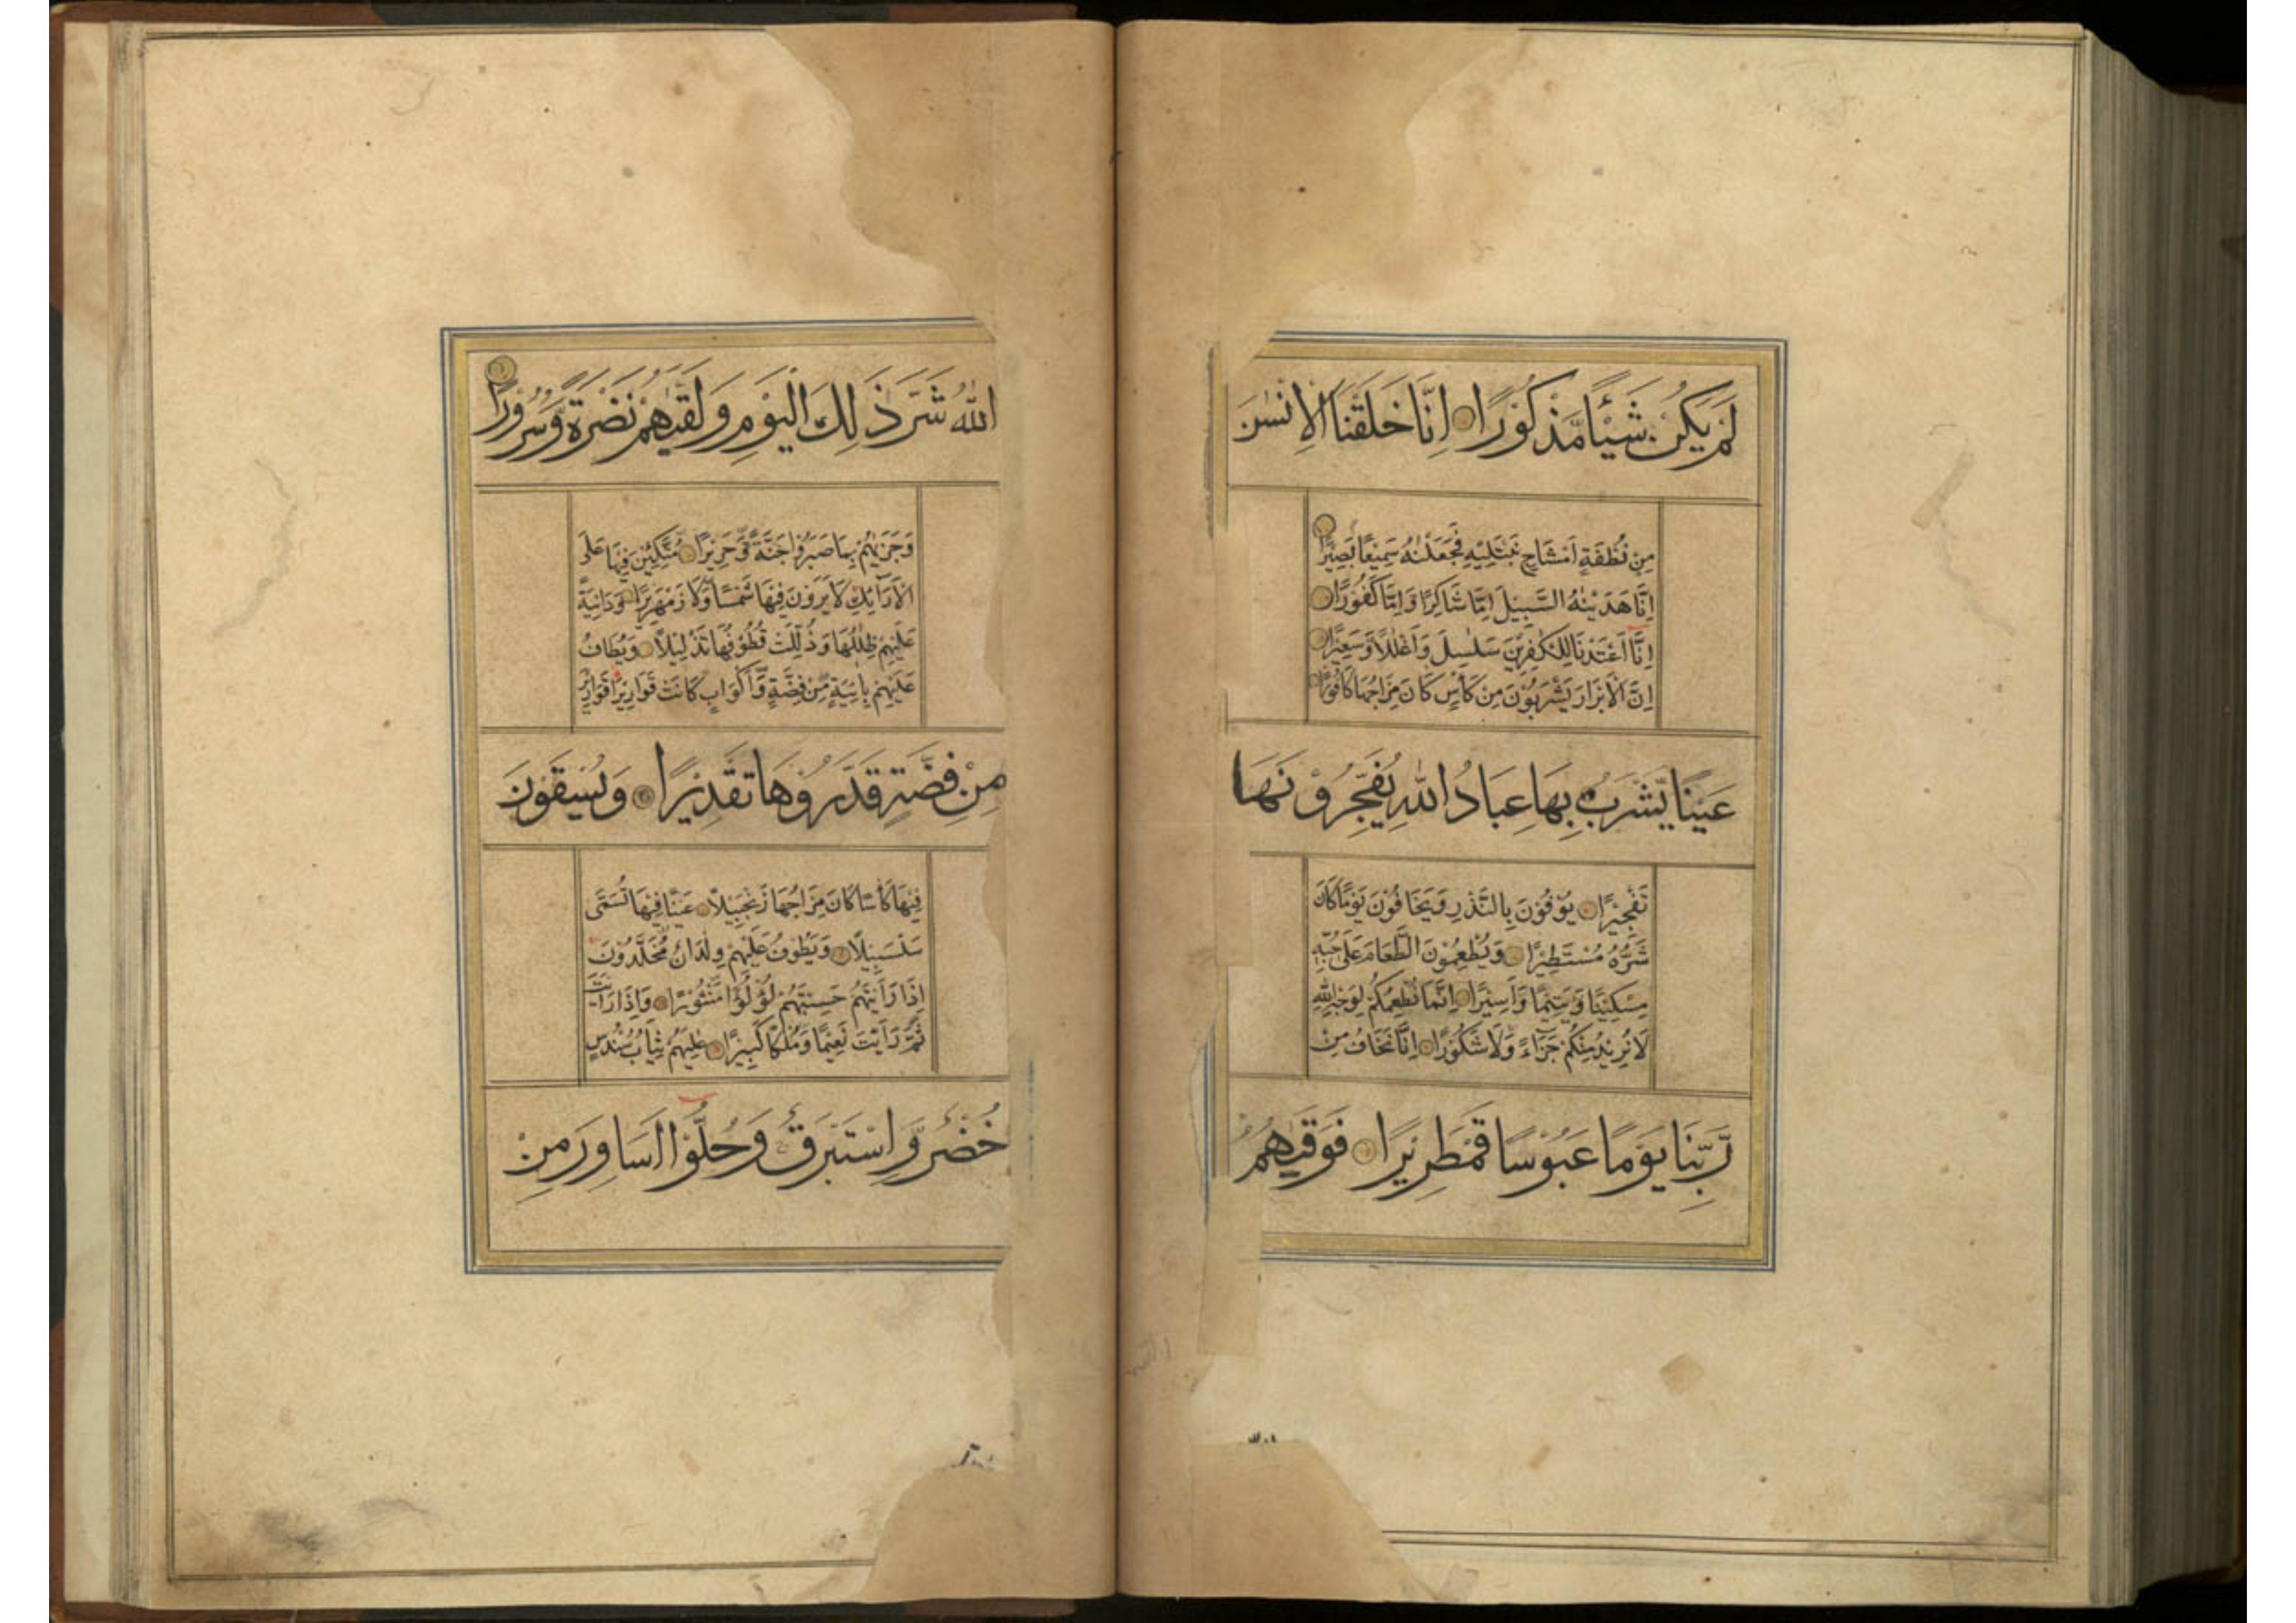 لَمْ يَكُنْ شَيْئًا مَّذْكُوْرًا اِنَّا خَلَقْنَا الْاِنْسٰنَ
مِنْ نُّطْفَةٍ اَمْشَاجٍ نَّبْتَلِيْهِ فَجَعَلْنٰهُ سَمِيْعًا بَصِيْرًا
اِنَّا هَدَيْنٰهُ السَّبِيْلَ اِمَّا شَاكِرًا وَّاِمَّا كَفُوْرًا
اِنَّا اَعْتَدْنَا لِلْكٰفِرِيْنَ سَلٰسِلَ وَاَغْلٰلًا وَّسَعِيْرًا
اِنَّ الْاَبْرَارَ يَشْرَبُوْنَ مِنْ كَاْسٍ كَانَ مِزَاجُهَا كَافُوْرًا
عَيْنًا يَّشْرَبُ بِهَا عِبَادُ اللّٰهِ يُفَجِّرُوْنَهَا
تَفْجِيْرًا يُوْفُوْنَ بِالنَّذْرِ وَيَخَافُوْنَ يَوْمًا كَانَ
شَرُّهٗ مُسْتَطِيْرًا وَيُطْعِمُوْنَ الطَّعَامَ عَلٰى حُبِّهٖ
مِسْكِيْنًا وَّيَتِيْمًا وَّاَسِيْرًا اِنَّمَا نُطْعِمُكُمْ لِوَجْهِ اللّٰهِ
لَا نُرِيْدُ مِنْكُمْ جَزَاءً وَّلَا شُكُوْرًا اِنَّا نَخَافُ مِنْ
رَّبِّنَا يَوْمًا عَبُوْسًا قَمْطَرِيْرًا فَوَقٰىهُمُ
اللّٰهُ شَرَّ ذٰلِكَ الْيَوْمِ وَلَقّٰىهُمْ نَضْرَةً وَّسُرُوْرًا
وَجَزٰىهُمْ بِمَا صَبَرُوْا جَنَّةً وَّحَرِيْرًا مُتَّكِئِيْنَ فِيْهَا عَلَى
الْاَرَآئِكِ لَا يَرَوْنَ فِيْهَا شَمْسًا وَّلَا زَمْهَرِيْرًا وَدَانِيَةً
عَلَيْهِمْ ظِلٰلُهَا وَذُلِّلَتْ قُطُوْفُهَا تَذْلِيْلًا وَيُطَافُ
عَلَيْهِمْ بِاٰنِيَةٍ مِّنْ فِضَّةٍ وَّاَكْوَابٍ كَانَتْ قَوَارِيْرَا قَوَارِيْرَ
مِنْ فِضَّةٍ قَدَّرُوْهَا تَقْدِيْرًا وَيُسْقَوْنَ
فِيْهَا كَاْسًا كَانَ مِزَاجُهَا زَنْجَبِيْلًا عَيْنًا فِيْهَا تُسَمّٰى
سَلْسَبِيْلًا وَيَطُوْفُ عَلَيْهِمْ وِلْدَانٌ مُّخَلَّدُوْنَ
اِذَا رَاَيْتَهُمْ حَسِبْتَهُمْ لُؤْلُؤًا مَّنْثُوْرًا وَاِذَا رَاَيْتَ
ثَمَّ رَاَيْتَ نَعِيْمًا وَّمُلْكًا كَبِيْرًا عٰلِيَهُمْ ثِيَابُ سُنْدُسٍ
خُضْرٌ وَّاِسْتَبْرَقٌ وَحُلُّوْا اَسَاوِرَ مِنْ